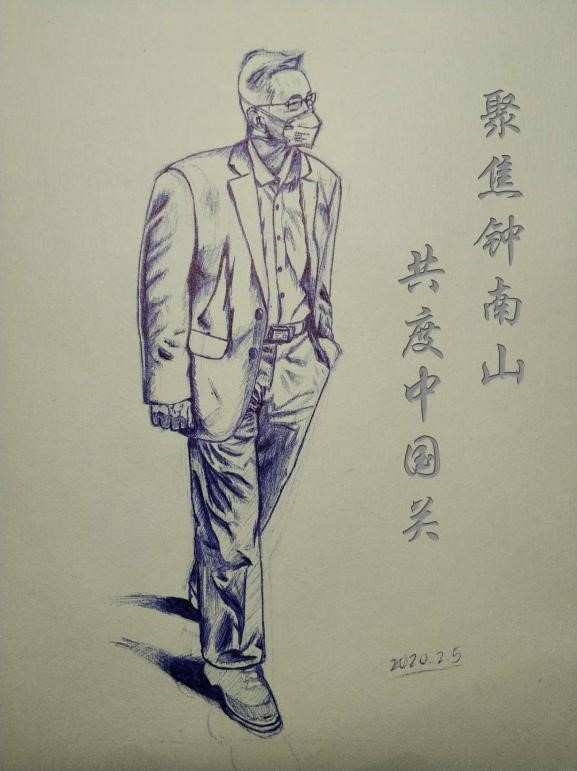 聚焦钟南山
共度中国关
2020.2.5